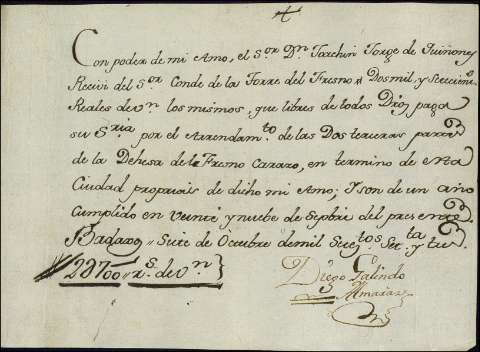 Con poder de mi Amo, el S.or Dn. Joachin Jorge de Quiñones
Recivi del S.or Conde de la Torre del Fresno Dosmil, y Setecien.s
Reales de v.n los mismos, que libres de todos Dros, paga
su S.ria por el Arrendam.to de las Dos terceras partes
de la Dehesa del Fresno Cazazo, en termino de esta
Ciudad propias de dicho mi Amo; Y son de un año
Cumplido en veinte y nuebe de Sepbre del presente
Badaxoz, Siete de Octubre de mil Set.tos Set.ta y
2D700 r.s de v.n
Diego Galindo
Almaraz